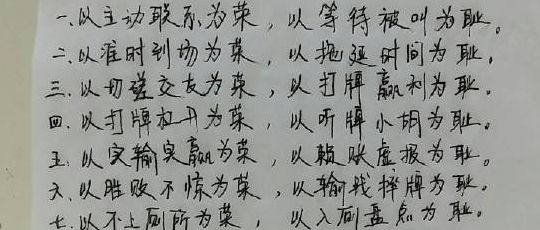 一.以主动联系为荣，以等待被叫为耻。
二.以准时到场为荣，以拖延时间为耻。
三.以切磋交友为荣，以打牌赢利为耻。
四.以打牌杠开为荣，以听牌小胡为耻。
五.以实输实赢为荣，以赖账虚报为耻。
六.以胜败不惊为荣，以输钱摔牌为耻。
七.以不上厕所为荣，以入厕盘点为耻。